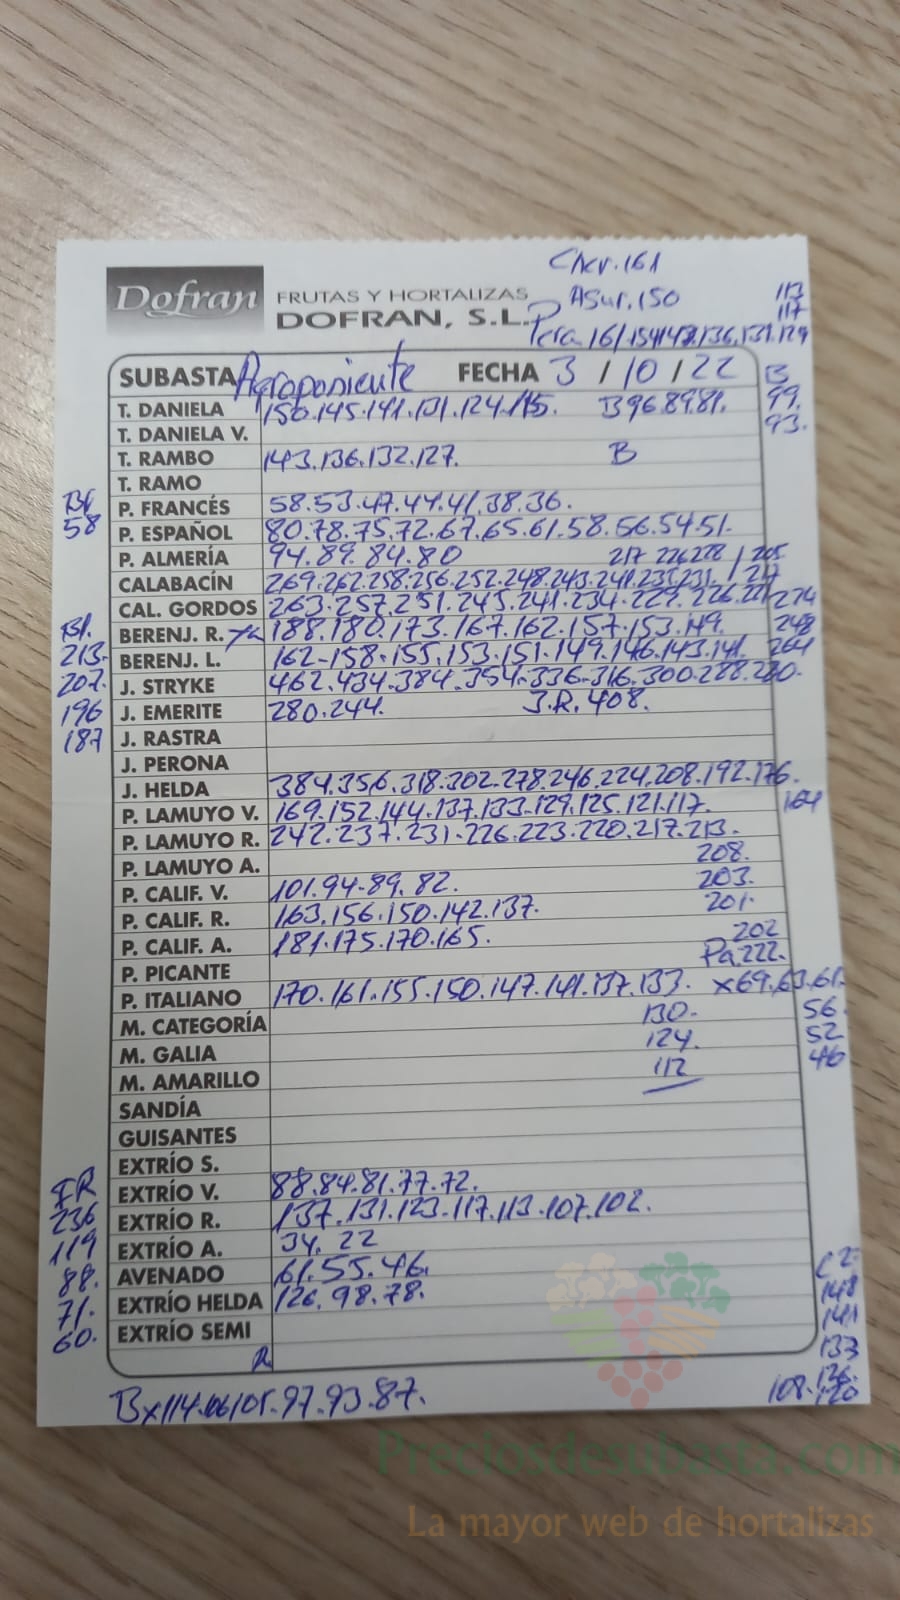 Cher. 161
Dofran FRUTAS Y HORTALIZAS
DOFRAN, S.L.
Asur. 150
113
117
Pera 161
136. 131. 129
SUBASTA Agroponiente FECHA 3 / 10 / 22
B
99.
93.
T. DANIELA 150. 145. 141. 131. 124. 115. B 96. 89. 81.
T. DANIELA V.
T. RAMBO 143. 136. 132. 127. B
T. RAMO
Bl
58
P. FRANCÉS 58. 53. 47. 44. 41. 38. 36.
P. ESPAÑOL 80. 78. 75. 72. 67. 65. 61. 58. 56. 54. 51.
P. ALMERÍA 94. 89. 84. 80
217 226 228 / 205
CALABACÍN 269. 262. 258. 256. 252. 248. 243. 241. 235. 231. / 217
CAL. GORDOS 263. 257. 251. 245. 241. 234. 229. 226. 221
274
248
264
Bl.
213.
202.
196
187
BERENJ. R. 188. 180. 173. 167. 162. 157. 153. 149.
BERENJ. L. 162-158. 155. 153. 151. 149. 146. 143. 141.
J. STRYKE 462. 434. 384. 354. 336. 316. 300. 288. 280.
J. EMERITE 280. 244. J.R. 408.
J. RASTRA
J. PERONA
J. HELDA 384. 356. 318. 302. 278. 246. 224. 208. 192. 176.
P. LAMUYO V. 169. 152. 144. 137. 133. 129. 125. 121. 117. 164
P. LAMUYO R. 242. 237. 231. 226. 223. 220. 217. 213.
P. LAMUYO A. 208.
P. CALIF. V. 101. 94-89. 82. 203.
P. CALIF. R. 163. 156. 150. 142. 137. 201.
P. CALIF. A. 181. 175. 170. 165. 202
P. PICANTE Pa 222.
P. ITALIANO 170. 161. 155. 150. 147. 141. 137. 133. x69. 63. 61.
M. CATEGORÍA 130. 56.
M. GALIA 124. 52
M. AMARILLO 112 46
SANDÍA
GUISANTES
EXTRÍO S.
FR
236
119
88.
71.
60.
EXTRÍO V. 88. 84. 81. 77. 72.
EXTRÍO R. 137. 131. 123. 117. 113. 107. 102.
EXTRÍO A. 34. 22
AVENADO 61. 55. 46.
EXTRÍO HELDA 126. 98. 78.
EXTRÍO SEMI
C2-
148
141
133
126.
108. 120
R
Bx114. 106 101. 97. 93. 87.
Preciosdesubasta.com
La mayor web de hortalizas